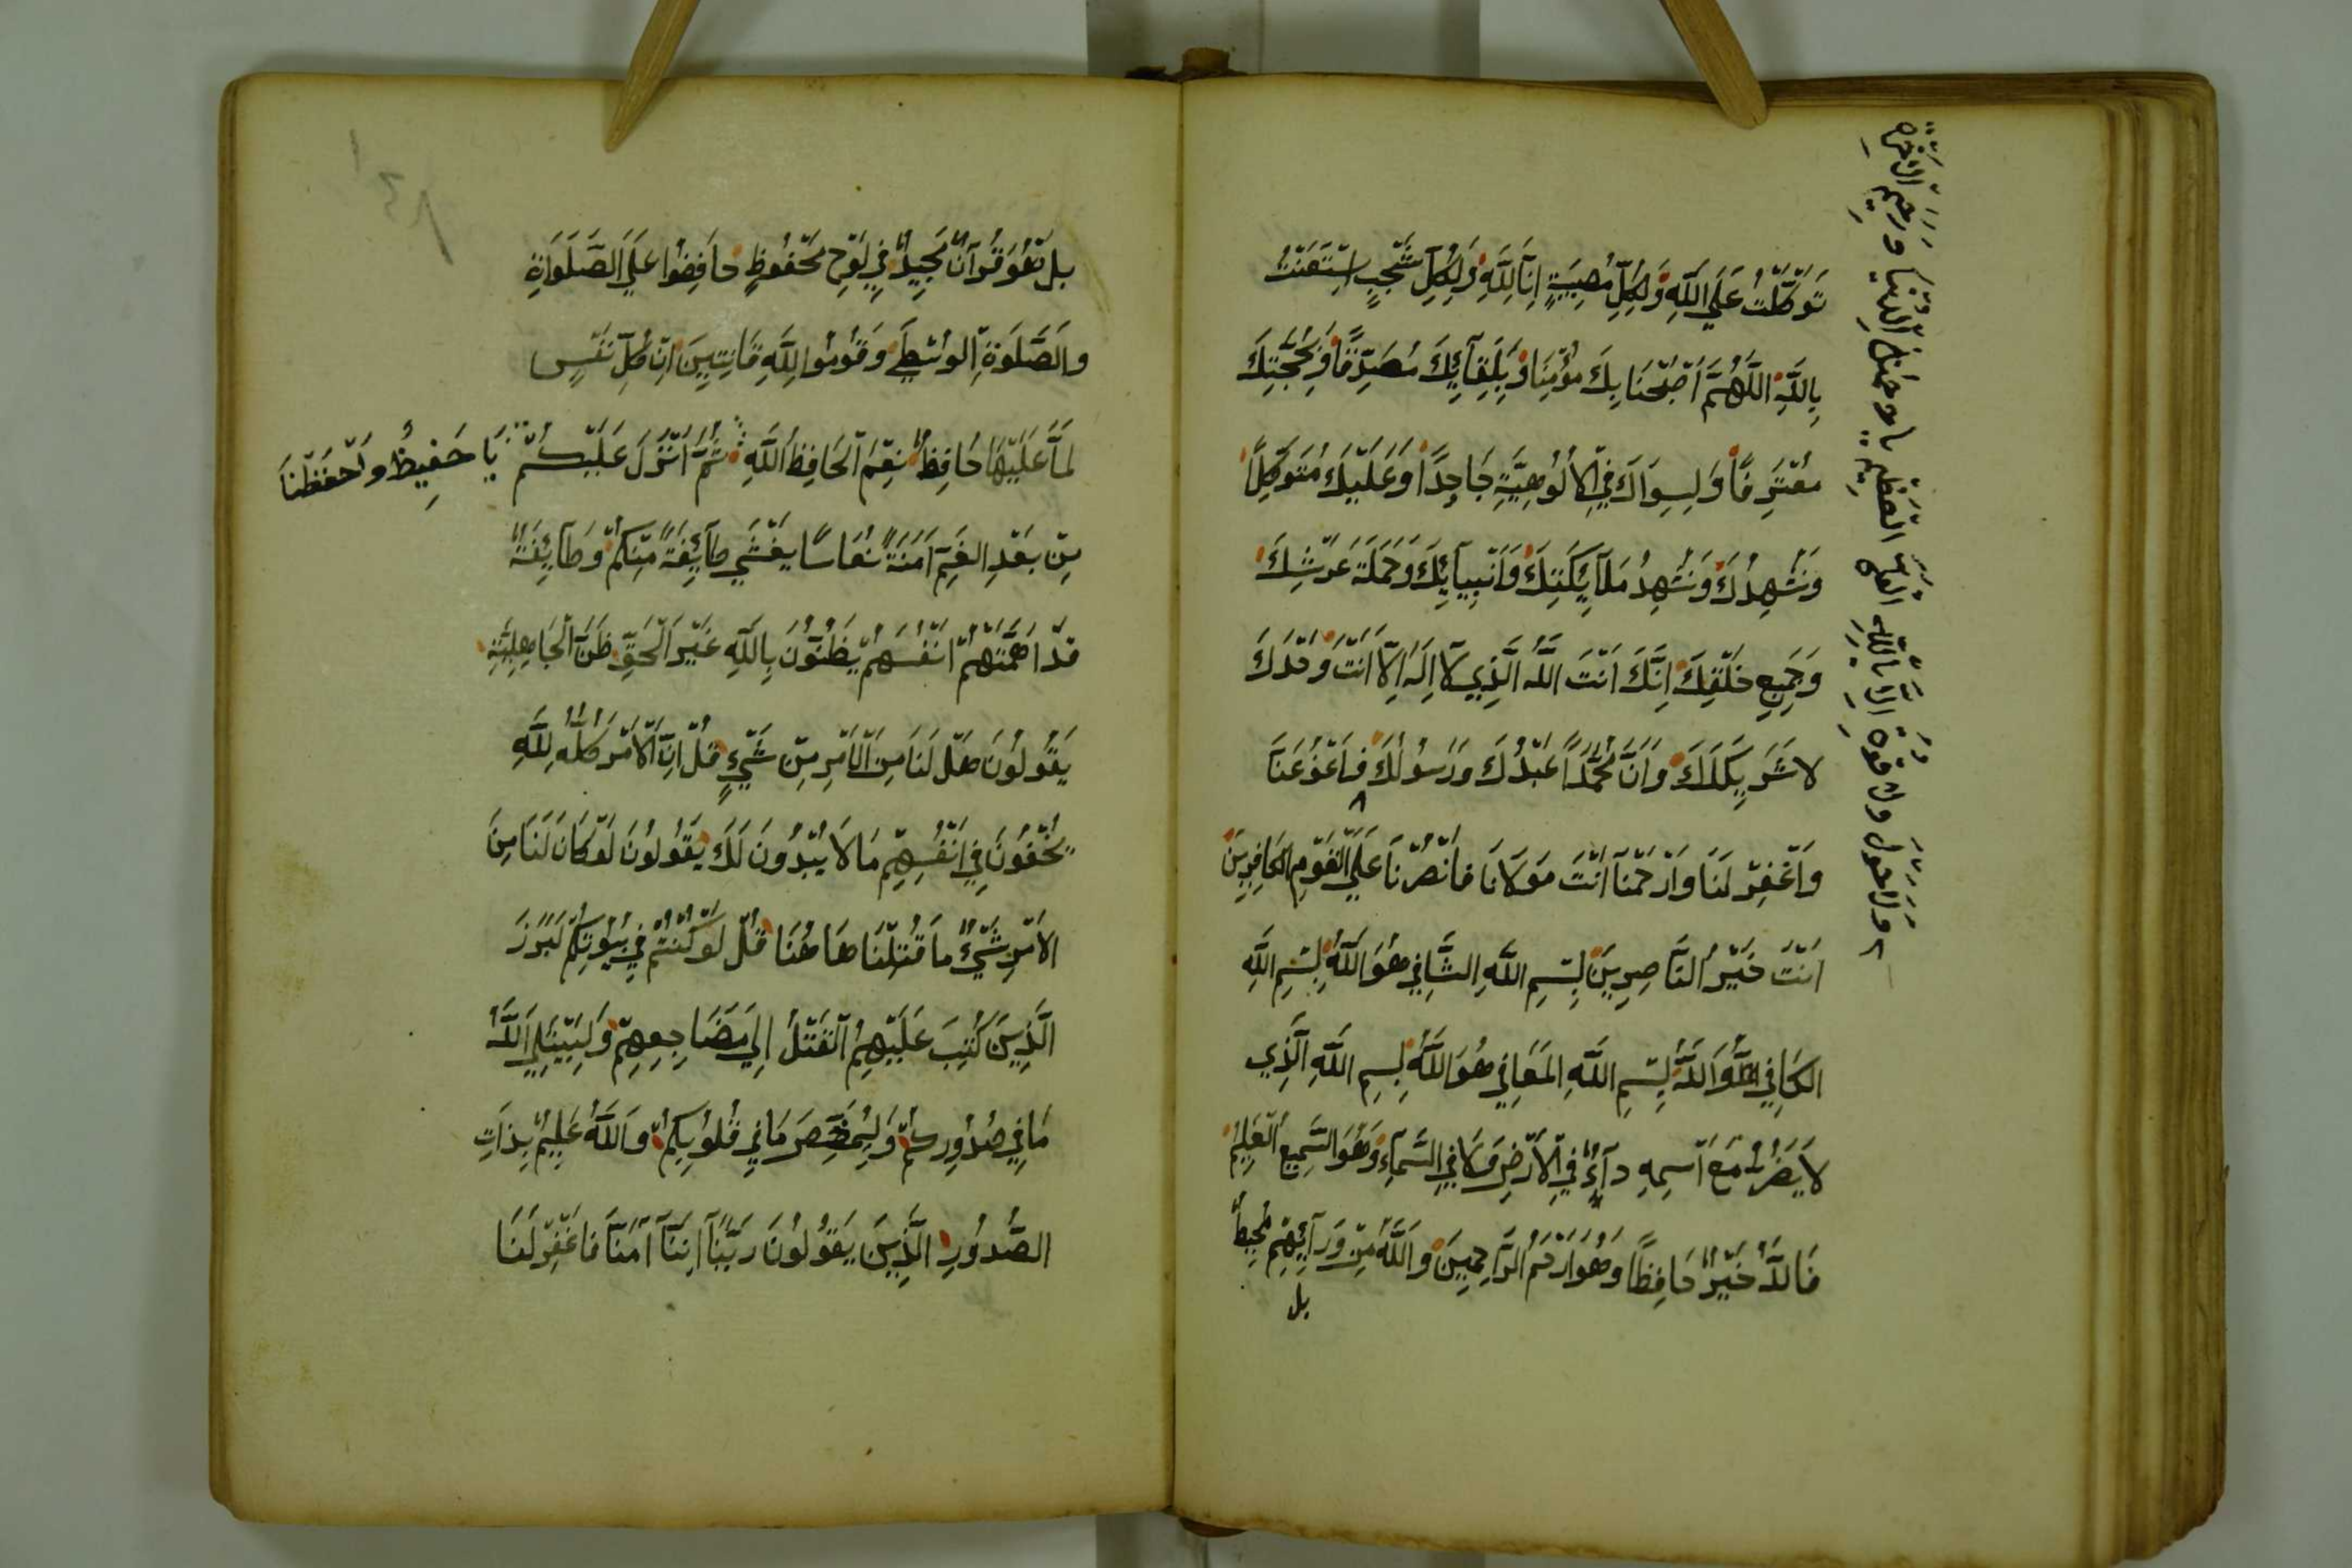 تَوَكَّلْتُ عَلَي اللَّهِ وَلِكُلِّ مُصِيبَةٍ اِنَّا لِلَّهِ وَلِكُلِّ شَجَبٍ اسْتَعَنْتُ
بِاللَّهِ اللَّهُمَّ اَصْبَحْنَا بِكَ مُؤْمِنًا وَبِلِقَآئِكَ مُصَدِّقًا وَبِحُجَّتِكَ
مُعْتَرِفًا وَلِسِوَاكَ فِي الْاُلُوهِيَّةِ جَاحِدًا وَعَلَيْكَ مُتَوَكِّلًا
وَنُشْهِدُكَ وَنُشْهِدُ مَلَآئِكَتِكَ وَاَنْبِيَآئِكَ وَحَمَلَةَ عَرْشِكَ
وَجَمِيعِ خَلْقِكَ اِنَّكَ اَنْتَ اللَّهُ الَّذِي لَآ اِلَهَ اِلَّا اَنْتَ وَحْدَكَ
لَا شَرِيكَ لَكَ وَاَنَّ مُحَمَّدًا عَبْدُكَ وَرَسُولُكَ فَاعْفُ عَنَّا
وَاغْفِرْ لَنَا وَارْحَمْنَآ اَنْتَ مَوْلَانَا فَانْصُرْنَا عَلَي الْقَوْمِ الْكَافِرِينَ
اَنْتَ خَيْرُ النَّاصِرِينَ بِسْمِ اللَّهِ الشَّافِي هُوَ اللَّهُ بِسْمِ اللَّهِ
الْكَافِي هُوَ اللَّهُ بِسْمِ اللَّهِ الْمُعَافِي هُوَ اللَّهُ بِسْمِ اللَّهِ الَّذِي
لَا يَضُرُّ مَعَ اسْمِهِ دَآءٌ فِي الْاَرْضِ وَلَا فِي السَّمَآءِ وَهُوَ السَّمِيعُ الْعَلِيمُ
فَاللَّهُ خَيْرٌ حَافِظًا وَهُوَ اَرْحَمُ الرَّاحِمِينَ وَاللَّهُ مِنْ وَرَآئِهِمْ مُحِيطٌ
بل
وَلَا حَوْلَ وَلَا قُوَّةَ اِلَّا بِاللَّهِ الْعَلِيِّ الْعَظِيمِ يَا رَحْمَنَ الدُّنْيَا وَرَحِيمَ الْآخِرَةِ
بَلْ هُوَ قُرْآنٌ مَجِيدٌ فِي لَوْحٍ مَحْفُوظٍ حَافِظُوا عَلَي الصَّلَوَاةِ
وَالصَّلَوةِ الْوُسْطَي وَقُومُوا لِلَّهِ قَانِتِينَ اِنْ كُلُّ نَفْسٍ
لَمَّا عَلَيْهَا حَافِظٌ نِعْمَ الْحَافِظُ اللَّهُ ثُمَّ اَنْزَلَ عَلَيْكُمْ يَا حَفِيظُ وَاحْفَظْنَا
مِنْ بَعْدِ الْغَمِّ اَمَنَةً نُعَاسًا يَغْشَي طَآئِفَةً مِنْكُمْ وَطَآئِفَةٌ
قَدْ اَهَمَّتْهُمْ اَنْفُسُهُمْ يَظُنُّونَ بِاللَّهِ غَيْرَ الْحَقِّ ظَنَّ الْجَاهِلِيَّةِ
يَقُولُونَ هَلْ لَنَا مِنَ الْاَمْرِ مِنْ شَيْءٍ قُلْ اِنَّ الْاَمْرَ كُلَّهُ لِلَّهِ
يُخْفُونَ فِي اَنْفُسِهِمْ مَا لَا يُبْدُونَ لَكَ يَقُولُونَ لَوْ كَانَ لَنَا مِنَ
الْاَمْرِ شَيْءٌ مَا قُتِلْنَا هَاهُنَا قُلْ لَوْ كُنْتُمْ فِي بُيُوتِكُمْ لَبَرَزَ
الَّذِينَ كُتِبَ عَلَيْهِمُ الْقَتْلُ اِلَي مَضَاجِعِهِمْ وَلِيَبْتَلِيَ اللَّهُ
مَا فِي صُدُورِكُمْ وَلِيُمَحِّصَ مَا فِي قُلُوبِكُمْ وَاللَّهُ عَلِيمٌ بِذَاتِ
الصُّدُورِ الَّذِينَ يَقُولُونَ رَبَّنَآ اِنَّنَآ آمَنَّا فَاغْفِرْ لَنَا